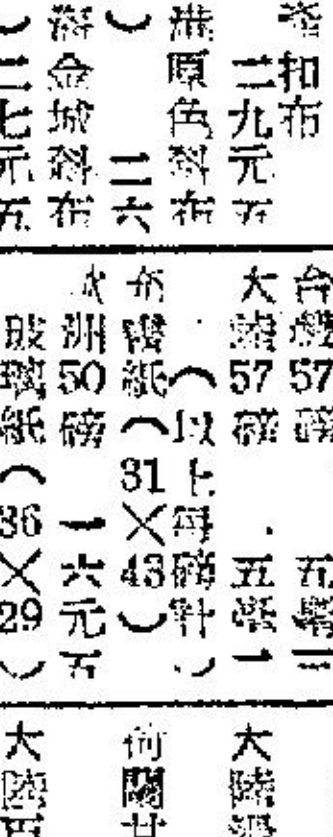 扣布
二九元五
原色斜布
）二六
金城斜布
）二七元五
台 57磅 五 三
大陸57磅 五 一
（以上每磅計）
紙（31×43）
洲50磅 一六元五
玻璃紙（36×29）
大陸
荷蘭廿
大陸